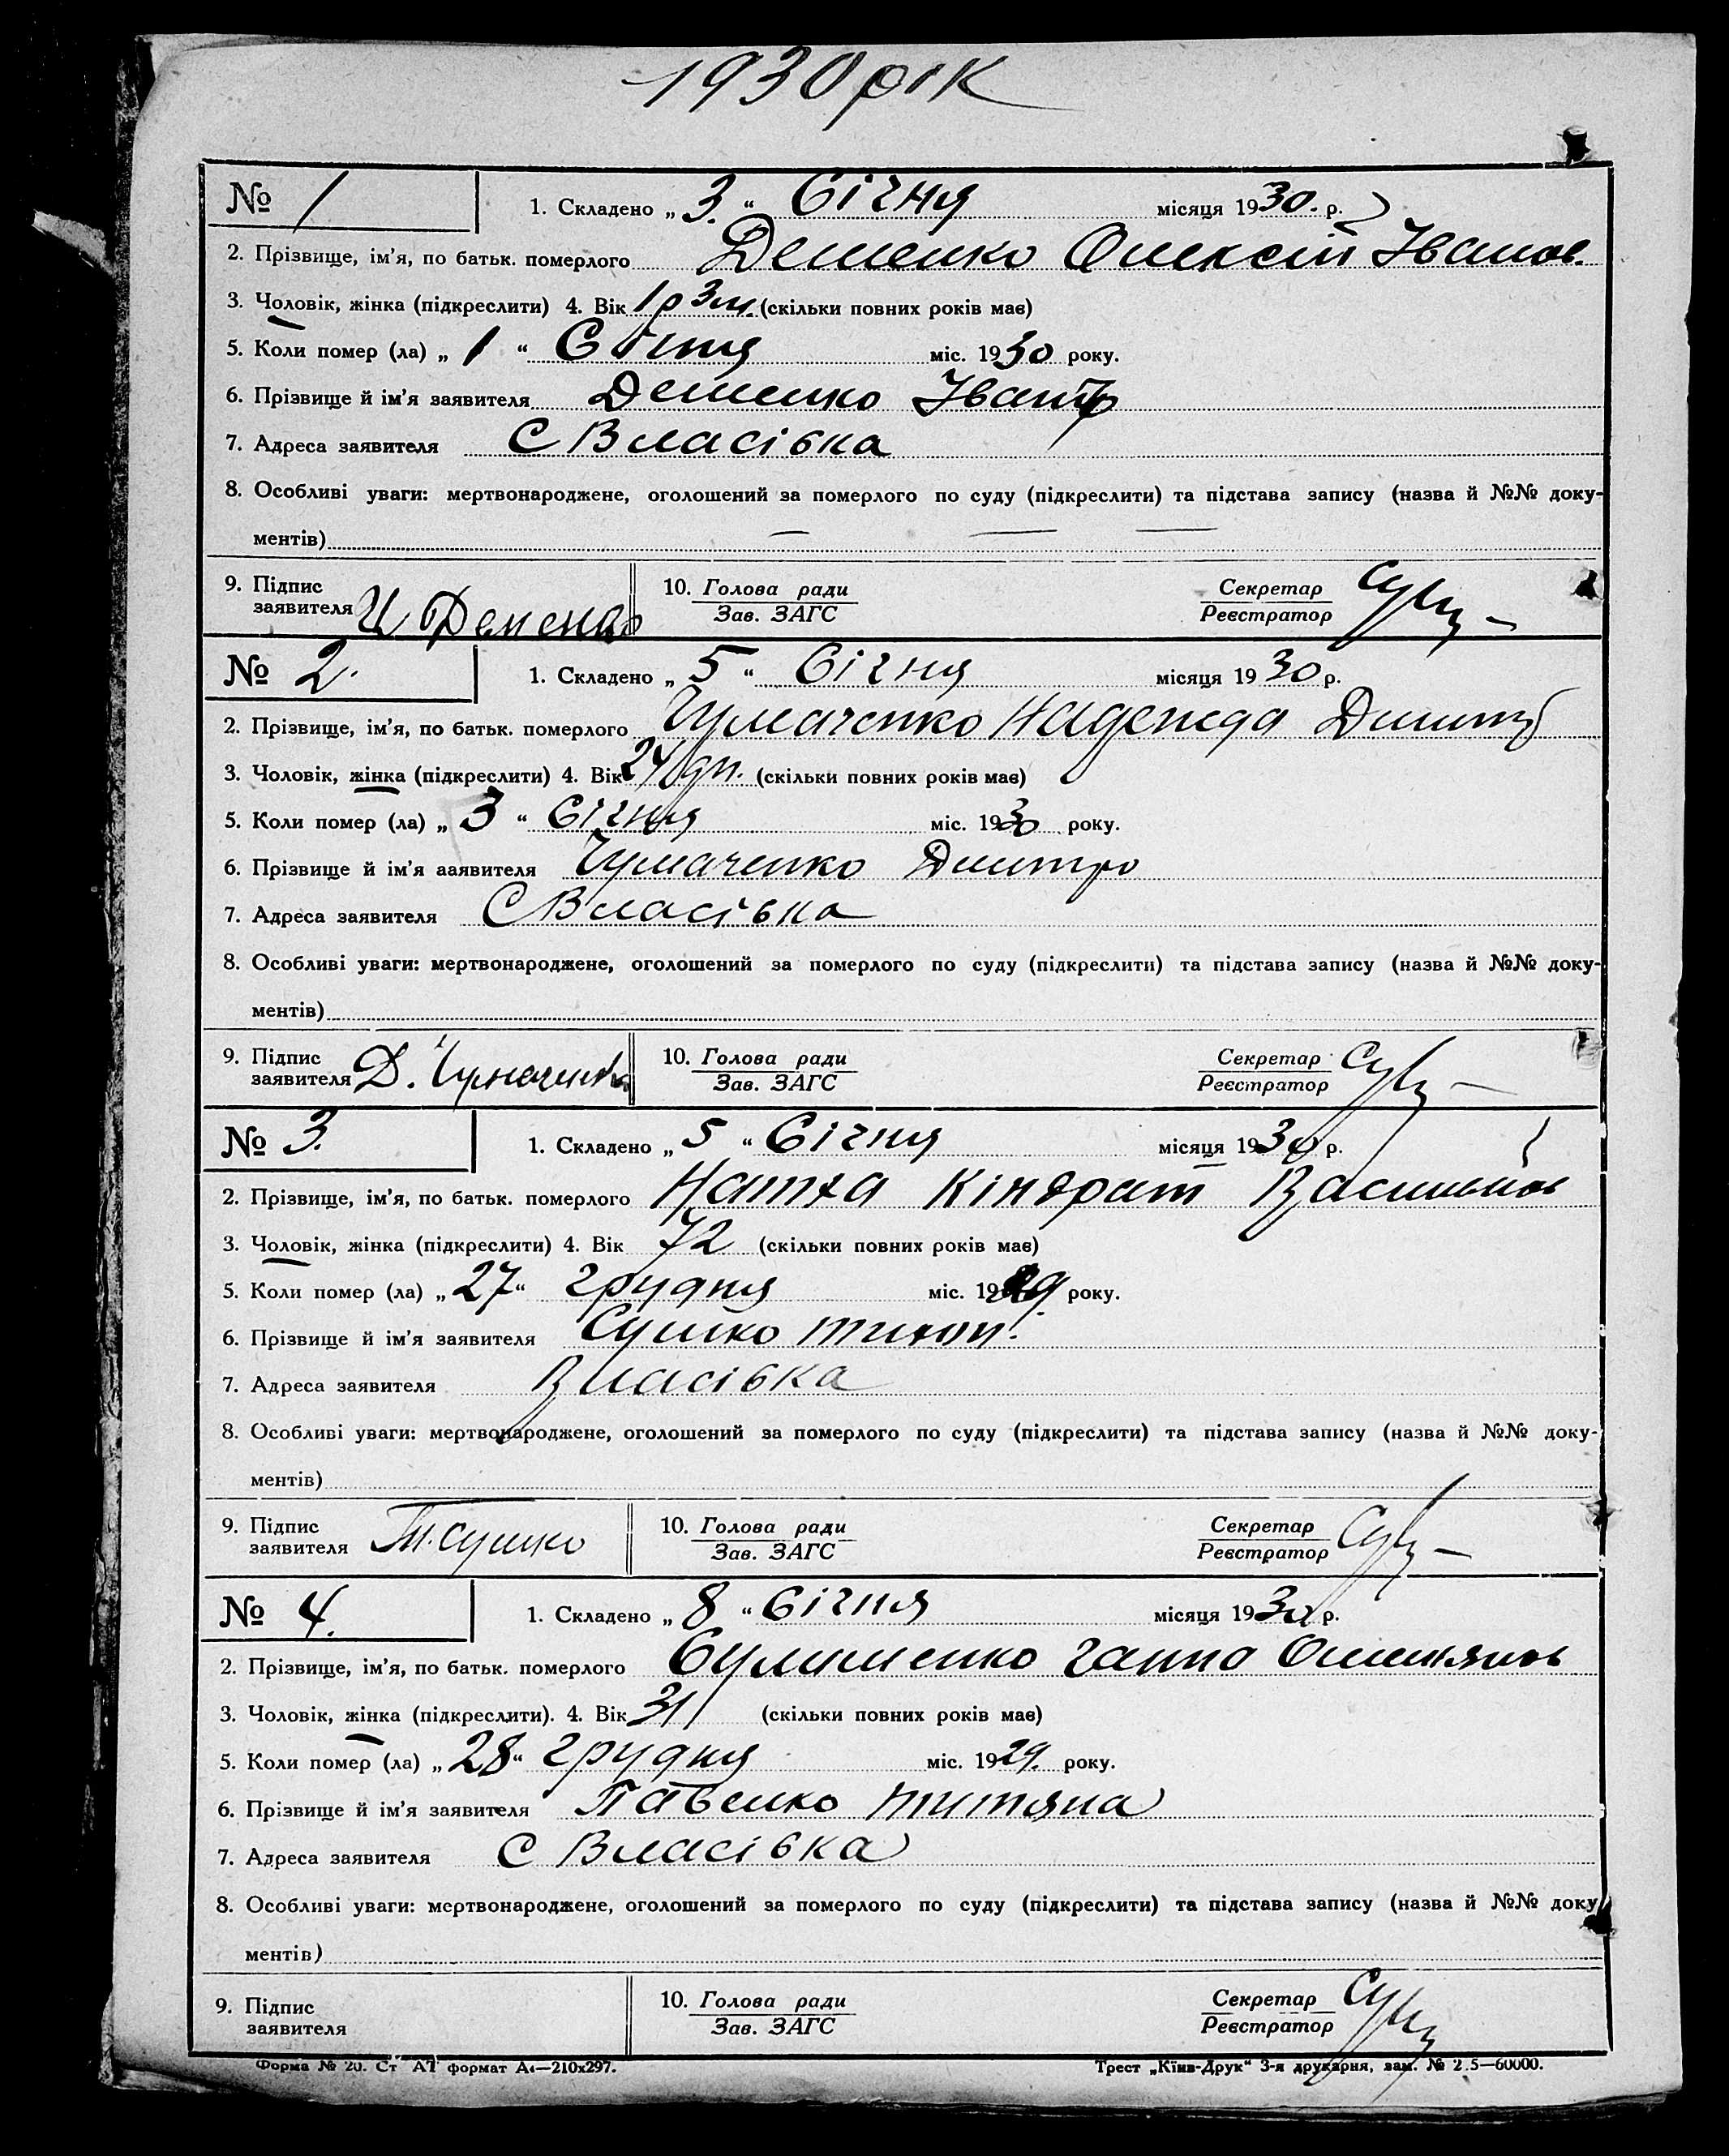 1930 рік
№ 1 1. Складено „ 3. “ Січня місяця 1930. р.
2. Прізвище, ім'я, по батьк. померлого Деменко Олексій Іванов.
3. Чоловік, жінка (підкреслити) 4. Вік 1 р 3 м. (скільки повних років має)
5. Коли помер (ла) „ 1 “ Січня міс. 1930 року.
6. Прізвище й ім'я заявителя Деменко Іван
7. Адреса заявителя С Власівка
8. Особливі уваги: мертвонароджене, оголошений за померлого по суду (підкреслити) та підстава запису (назва й №№ доку-
ментів)
9. Підпис заявителя И Деменко 10. Голова ради Зав. ЗАГС Секретар Реєстратор
№ 2. 1. Складено „ 5 “ Січня місяця 1930 р.
2. Прізвище, ім'я, по батьк. померлого Чумаченко Надежда Дмитр
3. Чоловік, жінка (підкреслити) 4. Вік 24 дн. (скільки повних років має)
5. Коли помер (ла) „ 3 “ Січня міс. 1930 року.
6. Прізвище й ім'я ааявителя Чумаченко Дмитро
7. Адреса заявителя С Власівка
8. Особливі уваги: мертвонароджене, оголошений за померлого по суду (підкреслити) та підстава запису (назва й №№ доку-
ментів)
9. Підпис заявителя Д. Чумаченко 10. Голова ради Зав. ЗАГС Секретар Реєстратор
№ 3. 1. Складено „ 5 “ Січня місяця 1930 р.
2. Прізвище, ім'я, по батьк. померлого Кіндрат Васильов
3. Чоловік, жінка (підкреслити) 4. Вік 72 (скільки повних років має)
5. Коли помер (ла) „ 27 “ грудня міс. 1929 року.
6. Прізвище й ім'я заявителя Сушко Тихон.
7. Адреса заявителя Власівка
8. Особливі уваги: мертвонароджене, оголошений за померлого по суду (підкреслити) та підстава запису (назва й №№ доку-
ментів)
9. Підпис заявителя Т. Сушко 10. Голова ради Зав. ЗАГС Секретар Реєстратор
№ 4. 1. Складено „ 8 “ Січня місяця 1930 р.
2. Прізвище, ім'я, по батьк. померлого Ганна
3. Чоловік, жінка (підкреслити). 4. Вік 31 (скільки повних років має)
5. Коли помер (ла) „ 28 “ грудня міс. 1929. року.
6. Прізвище й ім'я заявителя Павенко Титяна
7. Адреса заявителя С Власівка
8. Особливі уваги: мертвонароджене, оголошений за померлого по суду (підкреслити) та підстава запису (назва й №№ доку
ментів)
9. Підпис заявителя 10. Голова ради Зав. ЗАГС Секретар Реєстратор
Форма № 20. Ст АТ формат А4—210х297. Трест „Київ-Друк“ 3-я друкарня, зам. № 2.5—60000.